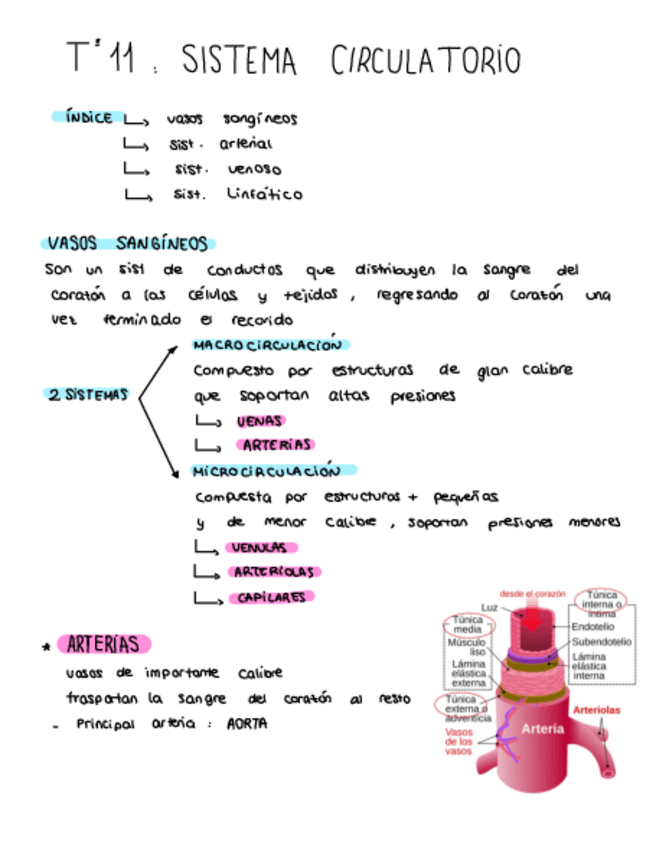 T'11. SISTEMA CIRCULATORIO
ÍNDICE vasos sangíneos
sist. arterial
sist. venoso
sist. Linfático
VASOS SANGÍNEOS
Son un sist de conductos que distribuyen la sangre del
corazón a las células y tejidos, regresando al corazón una
vez terminado el recorido
2 SISTEMAS
MACROCIRCULACIÓN
Compuesto por estructuras de gran calibre
que soportan altas presiones
VENAS
ARTERIAS
MICROCIRCULACIÓN
Compuesta por estructuras + pequeñas
y de menor calibre, soportan presiones menores
VENULAS
ARTERIOLAS
CAPILARES
* ARTERÍAS
vasos de importante calibre
trasportan la sangre del corazón al resto
- Principal arteria: AORTA
desde el corazón
Luz
Túnica
interna o
íntima
Endotelio
Subendotelio
Lámina
elástica
interna
Túnica
media
Músculo
liso
Lámina
elástica
externa
Túnica
externa o
adventicia
Vasos
de los
vasos
Arteria
Arteriolas